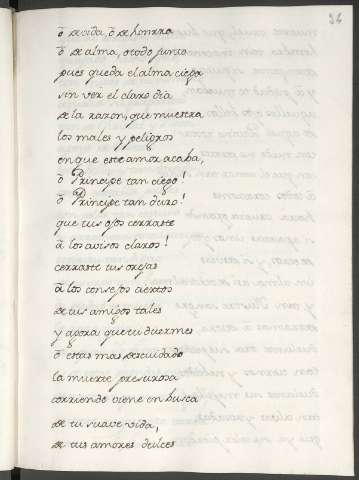 34
ô de vida, ô de honrra
ô de alma, o todo junto
pues queda el alma ciega
sin ver el claro dia
de la razon, que muestra
los males y peligros
en que este amor acaba,
ô Principe tan ciego!
ô Principe tan duro!
que tus ojos cerraste
â los avisos claros!
cerraste tus orejas
â los consejos ciertos
de tus amigos tales
y agora que tu duermes
ô estas mas descuidado
la muerte presurosa
corriendo viene en busca
de tu suave vida,
de tus amores dulces